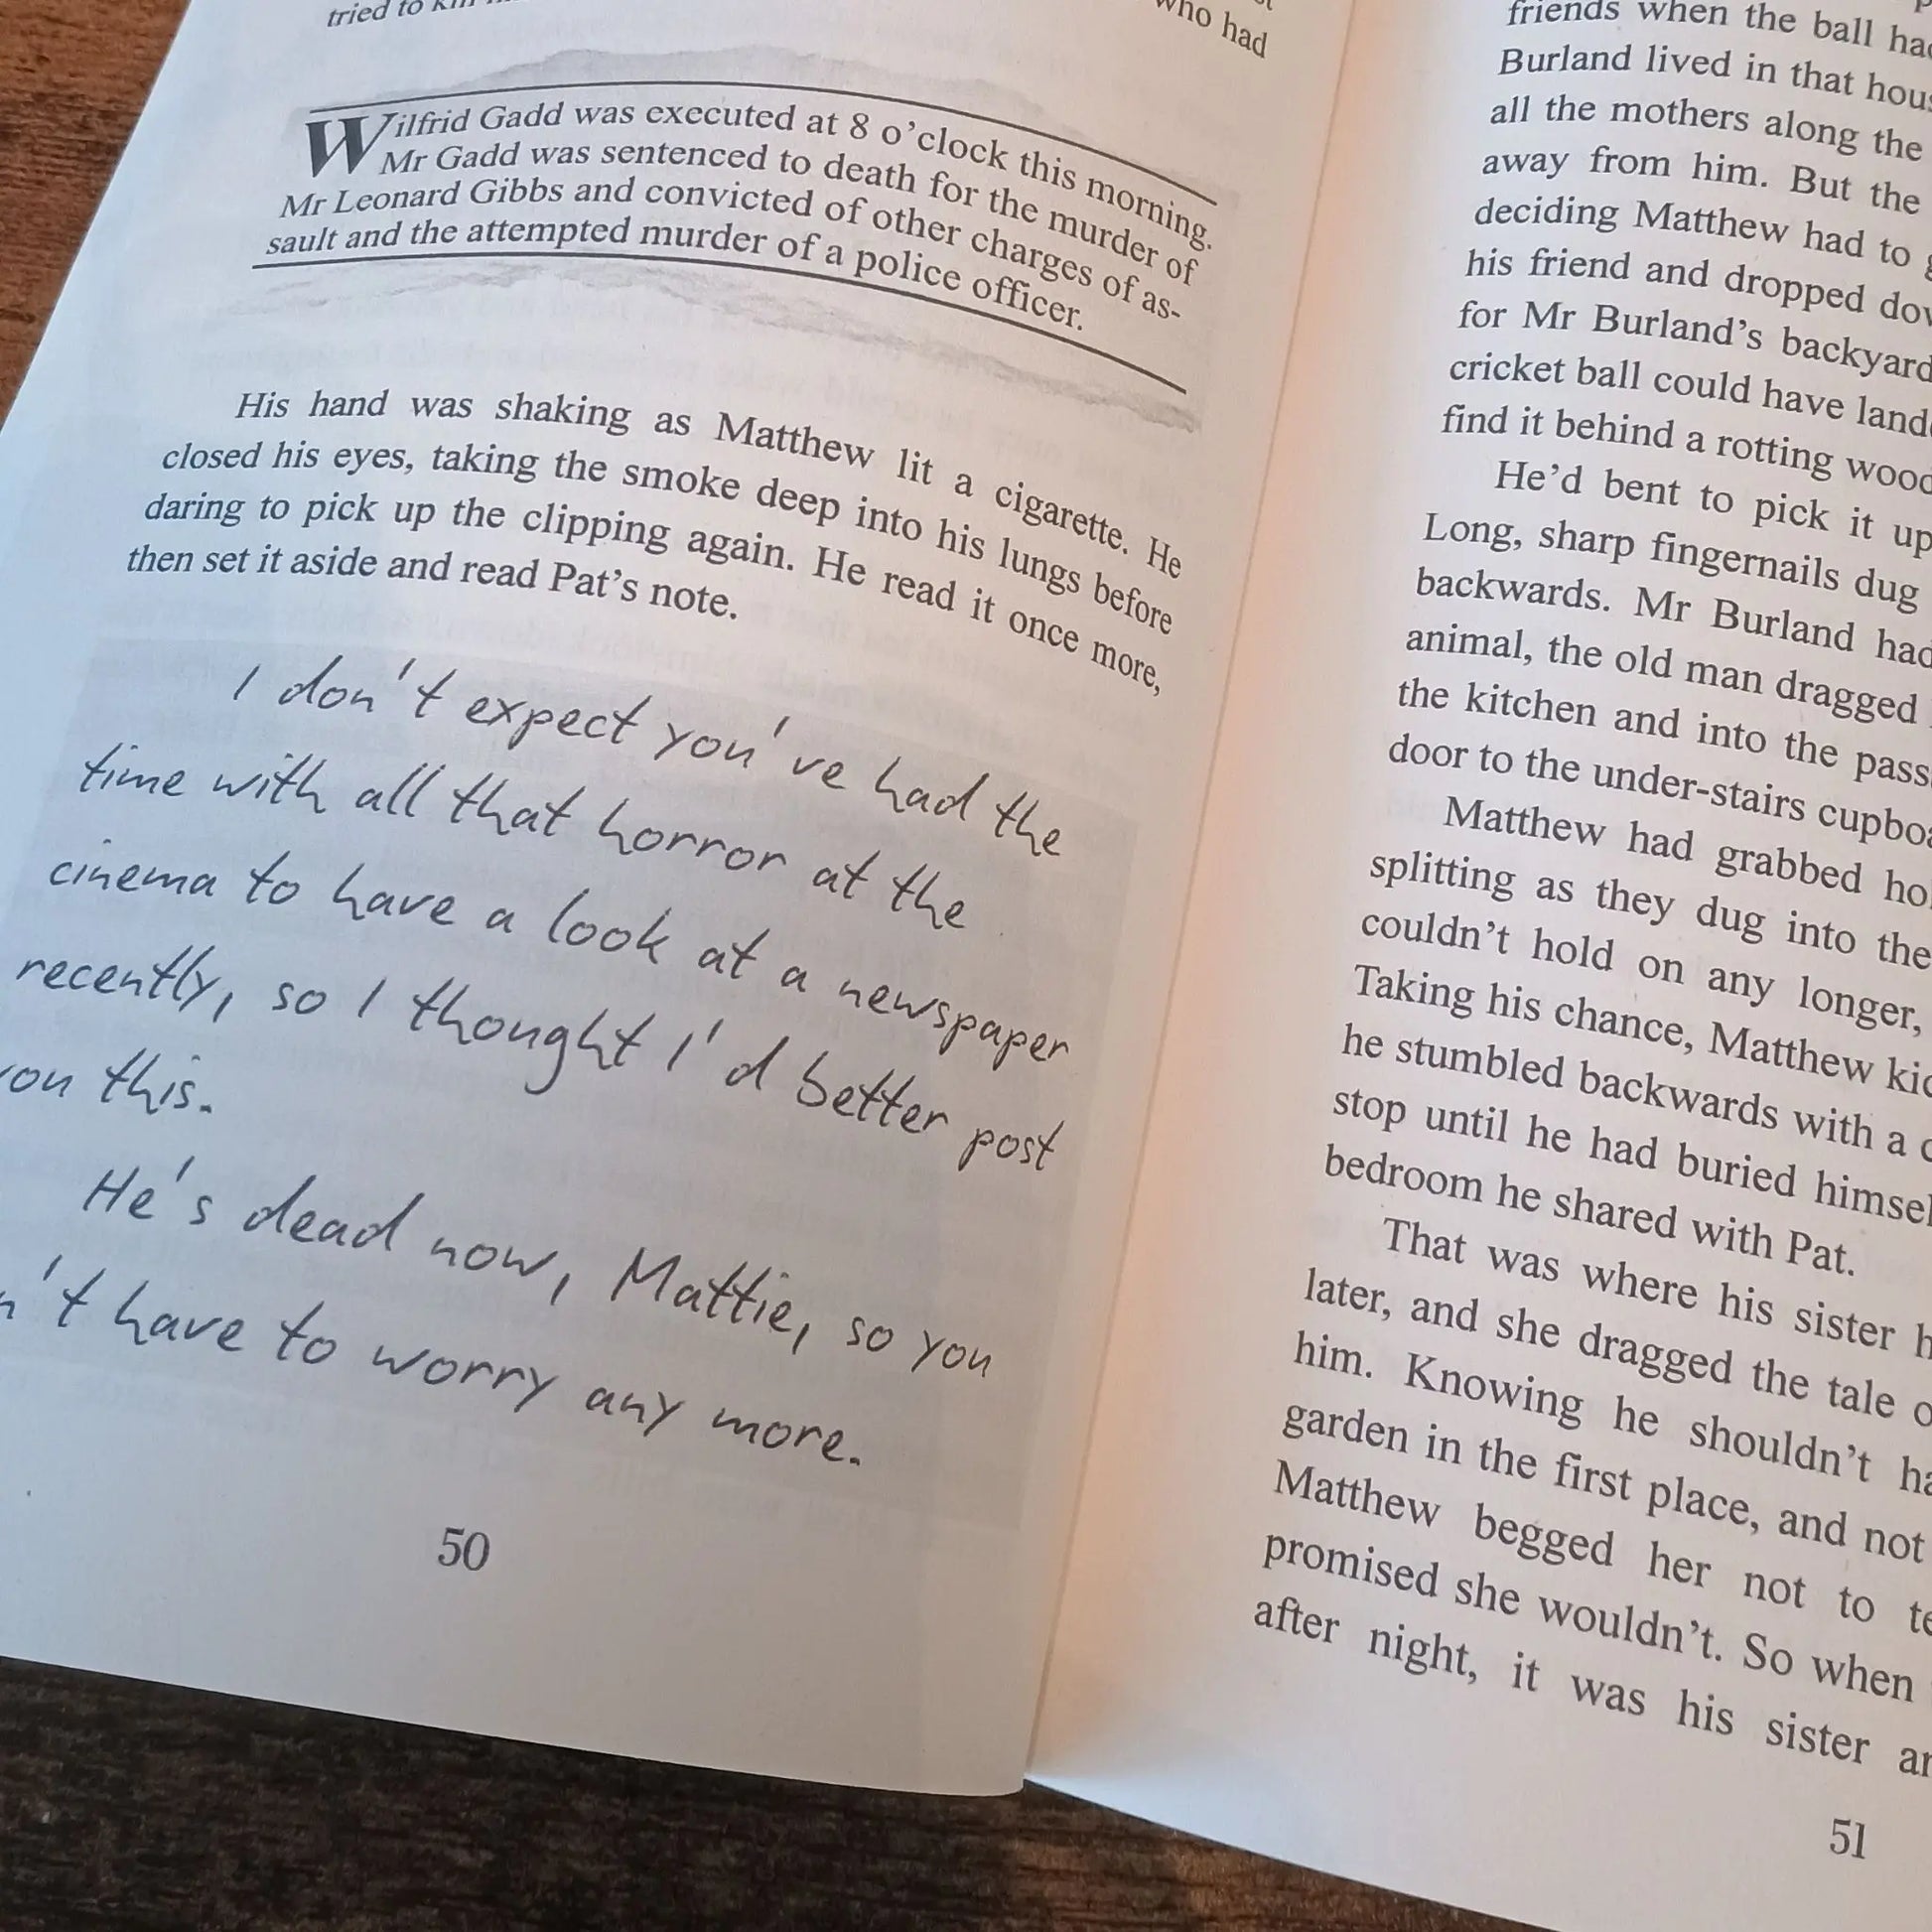 tried to
who had
Wilfrid Gadd was executed at 8 o'clock this morning.
Mr Gadd was sentenced to death for the murder of
Mr Leonard Gibbs and convicted of other charges of as-
sault and the attempted murder of a police officer.
His hand was shaking as Matthew lit a cigarette. He
closed his eyes, taking the smoke deep into his lungs before
daring to pick up the clipping again. He read it once more,
then set it aside and read Pat's note.
I don't expect you've had the
time with all that horror at the
cinema to have a look at a newspaper
recently, so I thought I'd better post
this.
He's dead now, Mattie, so you
have to worry any more.
50
friends when the ball
Burland lived in that
all the mothers along the
away from him. But the
deciding Matthew had to
his friend and dropped
for Mr Burland's backyard
cricket ball could have
find it behind a rotting
He'd bent to pick it up
Long, sharp fingernails dug
backwards. Mr Burland had
animal, the old man dragged
the kitchen and into the
door to the under-stairs
Matthew had grabbed
splitting as they dug into the
couldn't hold on any longer,
Taking his chance, Matthew
he stumbled backwards with a
stop until he had buried
bedroom he shared with Pat.
That was where his sister
later, and she dragged the tale
him. Knowing he shouldn't
garden in the first place, and not
Matthew begged her not to
promised she wouldn't. So when
after night, it was his sister
51